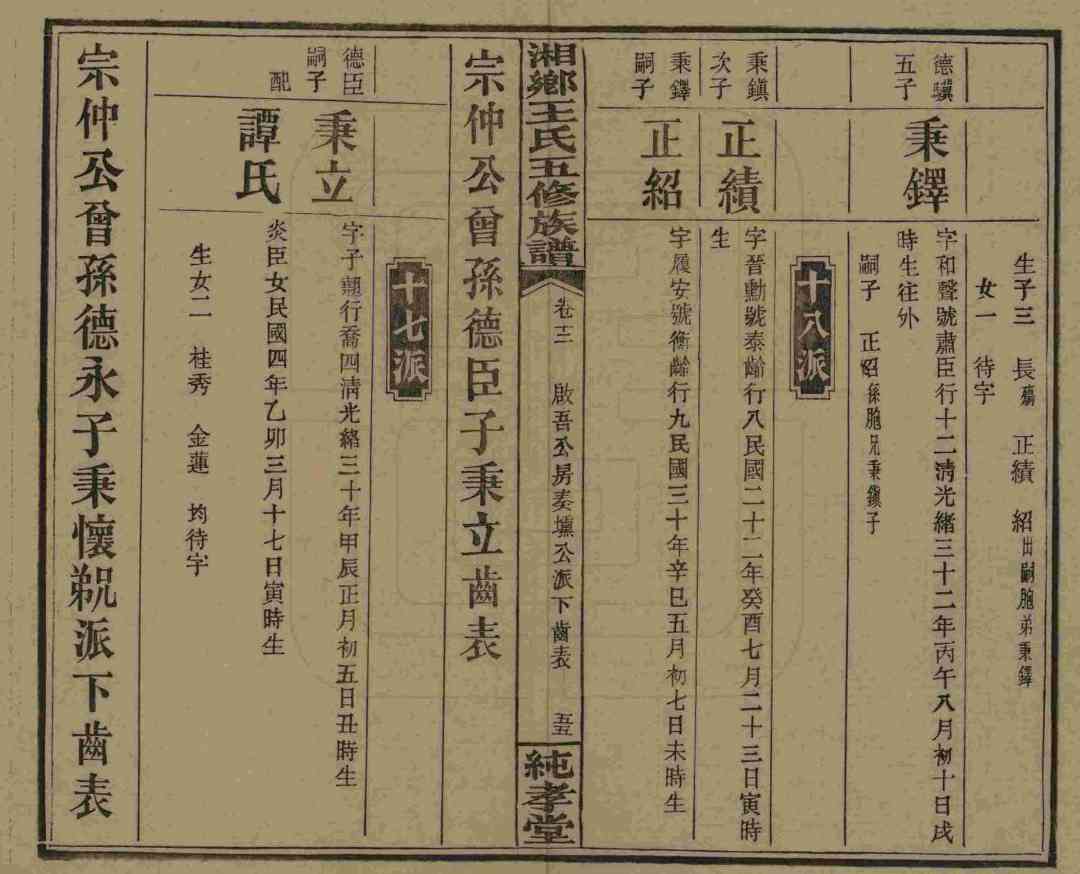 生子三　長殤　正績　紹出嗣胞弟秉鐸
女一　待字
德驥五子
秉鐸
字和聲號肅臣行十二淸光緖三十二年丙午八月初十日戌
時生往外
嗣子　正紹係胞兄秉鎭子
十八派
秉鎭次子
正績
字晉勳號泰齡行八民國二十二年癸酉七月二十三日寅時
生
秉鐸嗣子
正紹
字履安號衡齡行九民國三十年辛巳五月初七日未時生
湘鄉王氏五修族譜
卷十二　啟吾公房奏壎公派下齒表　五五
純孝堂
宗仲公曾孫德臣子秉立齒表
十七派
德臣嗣子
秉立
字子翹行喬四淸光緖三十年甲辰正月初五日丑時生
配
譚氏
炎臣女民國四年乙卯三月十七日寅時生
生女二　桂秀　金蓮　均待字
宗仲公曾孫德永子秉懷覡派下齒表